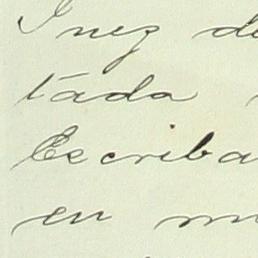 Inez de
tada
Escriba
en